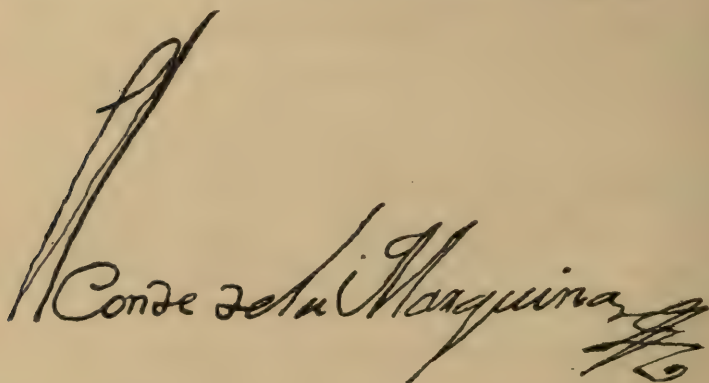 Conde de la Marquina